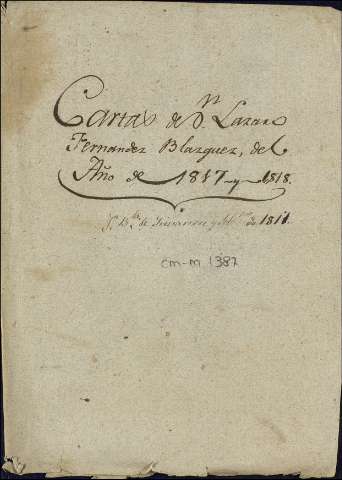 Cartas de Dn. Lazaro
Fernandez Blazquez, del
Año de 1817 y 1818.
de 1811
CM-M 1387